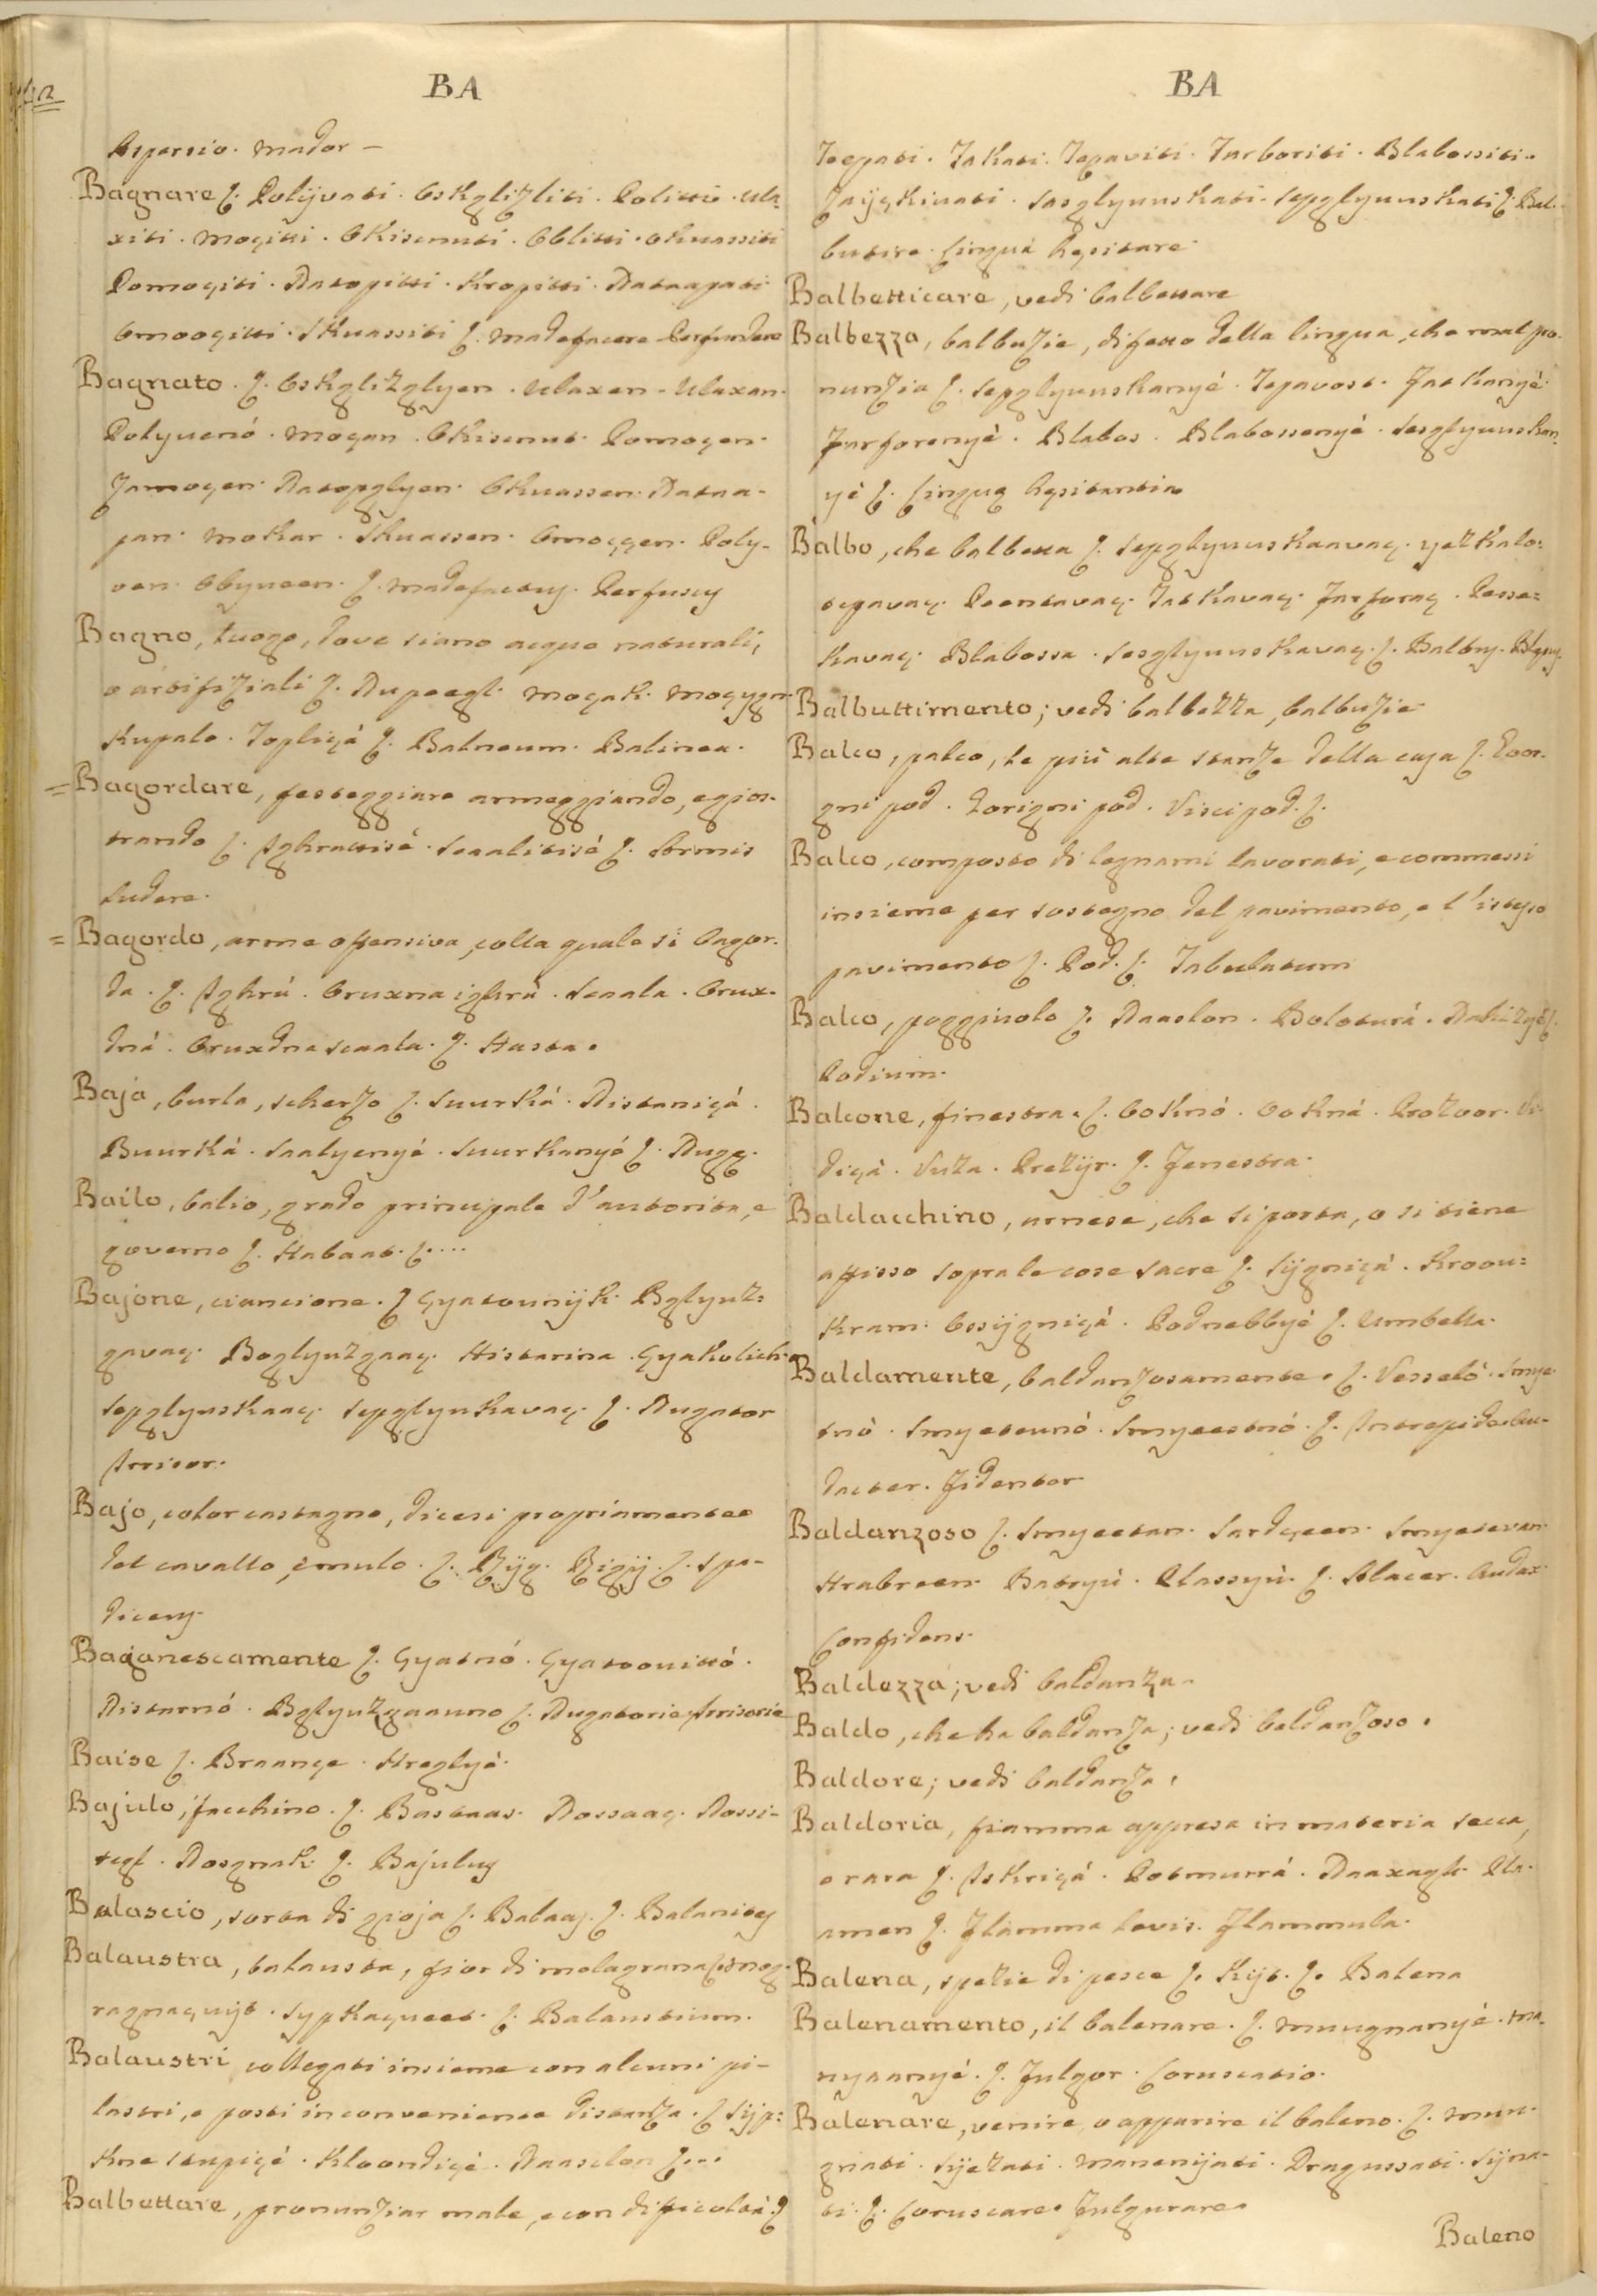 BA
Aspersio. Mador —
Bagnare ſ. Polijvati. Oskglizliti. Politti. Ula:
xiti. Mogitti. Okisenuti. Oblitti. Okuassiti
Pomoçiti. Natopitti. Kropitti. Nataapati
Omoogitti. Skuassiti ſ. Madefacere Perfundere
Bagnato. ſ. Oskglizglyen. Ulaxen. Ulaxan.
Polyuenó. Moçan. Okisenut. Pomoçen.
Zamoçen. Natopglyen. Okuassen. Nataa-
pan. Mokar. Skuassen. Omoççen. Poly-
ven. Obyueen. ſ. Madefactus. Perfusus
Bagno, luogo, dove siano acque naturali,
o artifiziali ſ. Kupeegl. Moçak. Moçygn.
Kupalo. Topliçá ſ. Balneum. Balinea.
= Bagordare, festeggiare armeggiando, e gios-
trando ſ. Ighrattisè. Scaalitisè ſ. Armis
ludere.
= Bagordo, arme offensiva, colla quale si bagor-
da. ſ. Ighrá. Oruxna ighrá. Scaala. Orux-
dná. Oruxdna scaala. ſ. Hasta.
Baja, burla, scherzo ſ. Suurká. Nistaniçá.
Buurká. Saalyenyé. Suurkanyé ſ. Nugę.
Bailo, balio, grado principale d'autorità, e
governo ſ. Habaat. ſ....
Bajone, ciancione. ſ Gyatounijk. Bglyuz:
gavaç. Boglyuzgaaç. Histarina. Gyakulich.
Sepglyuskaaç. Sepglyukavaç. ſ. Nugator
Irrisor.
Bajo, color castagno, dicesi propriamentee
del cavallo, e mulo. ſ. Rijg. Rigij. ſ. Spa-
diceus.
Bajanescamente ſ. Gyatnó. Gyatoouittó.
Nistarnó. Bglyuzgaauno ſ. Nugatorie, Irrisorie
Baise ſ. Braançe. Hreglyé.
Bajulo, facchino. ſ. Bastaas. Nossaaç. Nossi-
tegl. Nosgnak. ſ. Bajulus
Balascio, sorta di gioja ſ. Balaas. ſ. Balanites
Balaustra, balausta, fior di melagrana
ragnaçuijt. Sypkaçueet. ſ. Balaustium.
Balaustri, collegati insieme con alcuni pi-
lastri, e posti in conveniente distanza. ſ Sijp:
kne stupiçé. Kloondiçé. Naaslon ſ...
Balbettare, pronunziar male, e con dificoltà. ſ
BA
Teepati. Takati. Tepaviti. Farboriti. Blabossiti.
Zaijçkivati. Sasglyuuskati. Sepglyuuskati ſ. Bal-
butire. Lingua hęsitare.
Balbetticare, vedi balbettare
Balbezza, balbuzie, difetto della lingua, che mal pro-
nunzia ſ. Sepglyuuskanyé. Tepavost. Tatkanyé
Farforenyé. Blabos. Blabossenyé. Sasglyuuskan-
yé ſ. Linguę hęsitantia
Balbo, che balbetta ſ. Sepglyuuskaavaç. Yezkalo:
tepavaç. Peentavaç. Tatkavaç. Farforaç. Pesse=
kavaç. Blabossa. Sasglyuuskavaç. ſ. Balbus. Blęsus.
Balbuttimento; vedi balbezza, balbuzie.
Balco, palco, le più alte stanze della casa ſ. Goor-
gni pod. Gorigni pod. Visci pod. ſ.
Balco, composto di legnami lavorati, e commessi
insieme per sostegno del pavimento, e l'istesso
pavimento ſ. Pod. ſ. Tabulatum
Balco, poggiuolo ſ. Naaslon. Boloturá. ſ.
Podium.
Balcone, finestra. ſ. Ooknó. Ookná. Prozoor. Vi-
diçá. Vuza. Prezijr. ſ. Fenestra.
Baldacchino, arnese, che si porta, o si tiene
affisso sopra le cose sacre ſ. Sijgniçá. Kroou:
kram. Ossijgniçá. Podnebbyé ſ. Umbella.
Baldamente, baldanzosamente. ſ. Vesseló. Smye-
tnó. Smyeteunó. Smyeestnó. ſ. Intrepide. Au-
dacter. Fidenter
Baldanzoso ſ. Smyeetan. Sardçeen. Smyetevan.
Hrabreen. Batryú. Ulassyú. ſ. Alacer. Audax.
Confidens.
Baldezza; vedi baldanza.
Baldo, che ha baldanza; vedi baldanzoso.
Baldore; vedi baldanza.
Baldoria, fiamma appresa in materia secca,
o rara ſ. Iskriçá. Potmurrá. Naaxagh. Pla-
amen ſ. Flamma levis. Flammula.
Balena, spezie di pesce ſ. Kijt. ſ. Balena
Balenamento, il balenare. ſ. Muugnanyé. Ma-
nyaanyé. ſ. Fulgor. Coruscatio.
Balenare, venire, o apparire il baleno. ſ. Muu-
gnati. Sijezati. Manenijati. Dragussati. Sijna-
ti. ſ. Coruscare. Fulgurare.
Baleno